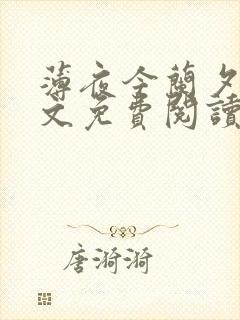 薄夜今蘭夕
文免費閱讀
唐漪漪